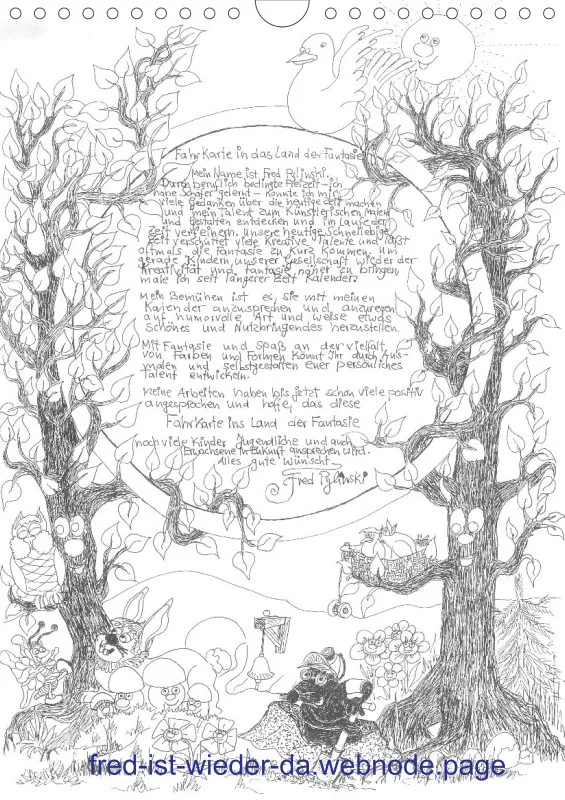 Fahrkarte in das Land der Fantasie
Mein Name ist Fred Pylinski.
Durch beruflich bedingte Freizeit - ich
habe Schäfer gelernt - konnte ich mir
viele Gedanken über die heutige Zeit machen
und mein Talent zum künstlerischen malen
und gestalten entdecken und im Laufe der
Zeit verfeinern. Unsere heutige schnellebige
Zeit verschüttet viele kreative Talente und läßt
oftmals die Fantasie zu kurz kommen. Um
gerade Kindern unserer Gesellschaft wieder der
Kreativität und Fantasie näher zu bringen,
male ich seit längerer Zeit Kalender.
Mein Bemühen ist es, sie mit meinen
Kalender anzusprechen und anzuregen
auf humorvolle Art und Weise etwas
schönes und Nutzbringendes herzustellen.
Mit Fantasie und Spaß an der Vielfalt
von Farben und Formen könnt Ihr durch Aus-
malen und selbstgestalten Euer persönliches
Talent entwickeln.
Meine Arbeiten haben bis jetzt schon viele positiv
angesprochen und hoffe, das diese
Fahrkarte ins Land der Fantasie
noch viele Kinder Jugendliche und auch
Erwachsene in Zukunft ansprechen wird.
Alles gute wünscht
Fred Pylinski
fred-ist-wieder-da.webnode.page